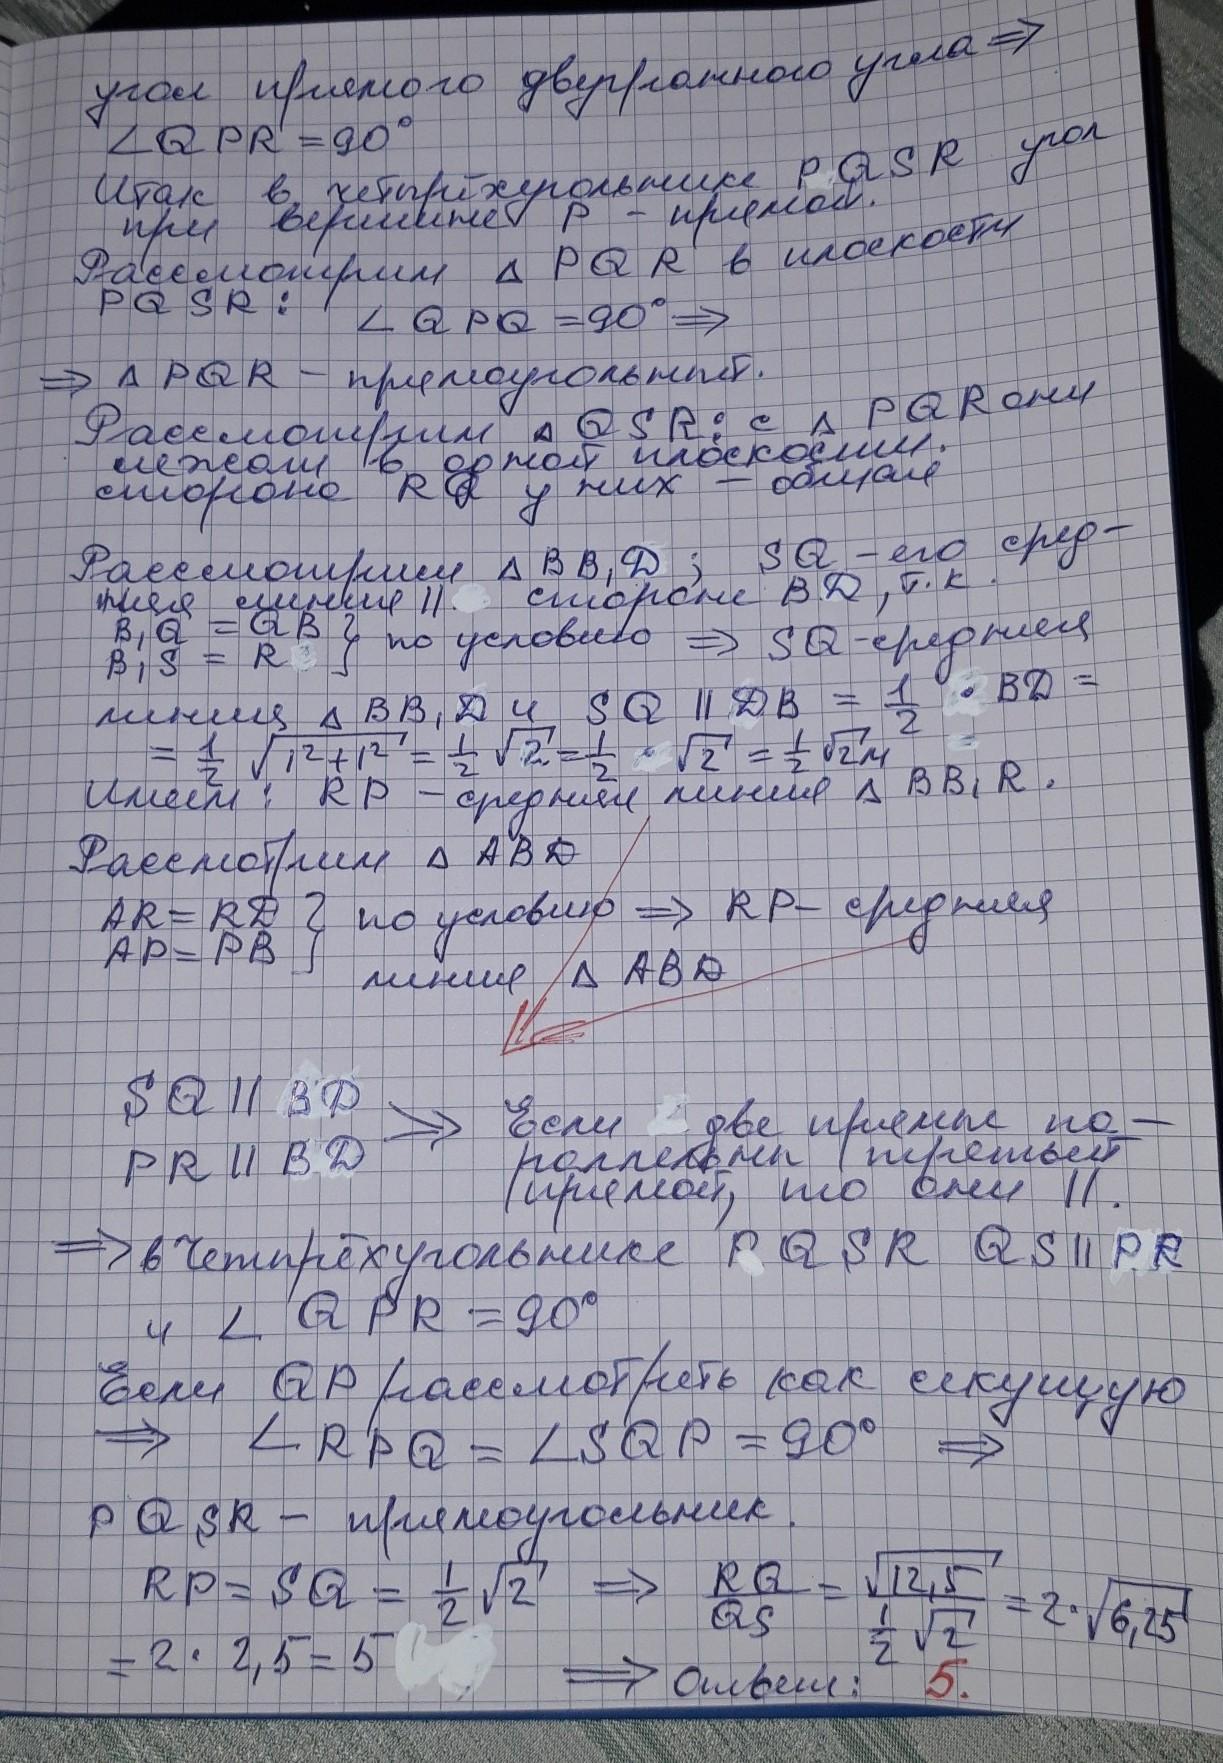 угол прямого двугранного угла ⇒
∠QPR = 90°
Итак в четырёхугольнике PQSR угол
при вершине P – прямой.
Рассмотрим △ PQR в плоскости
PQSR: ∠QPQ = 90° ⇒
⇒ △ PQR – прямоугольный.
Рассмотрим △ QSR: с △ PQR они
лежат в одной плоскости.
сторона RQ у них – общая
Рассмотрим △ BB₁D; SQ – его сред-
няя линия || стороне BD, т.к.
B₁Q = QB } по условию ⇒ SQ – средняя
B₁S = R
линия △ BB₁D и SQ || DB = 1/2 · BD =
= 1/2 √(1²+1²) = 1/2 √2 = 1/2 √2 = 1/2 √2 м
Имеем: RP – средняя линия △ BB₁R.
Рассмотрим △ ABD
AR = RD } по условию ⇒ RP – средняя
AP = PB
линия △ ABD
SQ || BD
PR || BD
⇒ Если две прямые па-
раллельны третьей
прямой, то они ||.
⇒ в четырёхугольнике PQSR QS || PR
и ∠ QPR = 90°
Если QP рассмотреть как секущую
⇒ ∠RPQ = ∠SQP = 90° ⇒
PQSR – прямоугольник.
RP = SQ = 1/2 √2 ⇒ RQ/QS = √12,5 / (1/2 √2) = 2 · √6,25
= 2 · 2,5 = 5 ⇒ Ответ: 5.